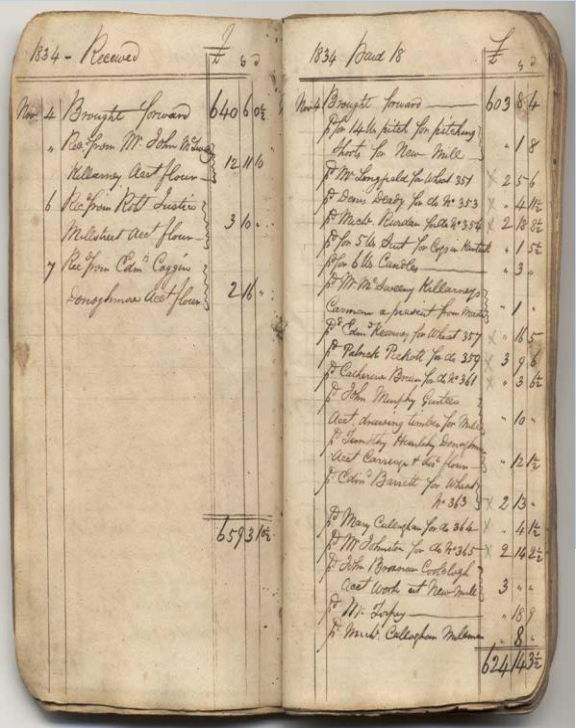 1834 - Received £ s d
Nov 4 Brought forward 640 6 0½
" Rec.d from Mr John McSwe
Killarney Acct flour 12 11 0
6 Rec.d from Robt Justice
Millstreet Acct flour 3 10 "
7 Rec.d from Edm.d Coggins
Donoghmore Acct flour 2 16 "
659 3 10½
1834 Paid 18 £ s d
Nov 4 Brought forward 603 8 4
pd for 14 lb pitch for pitching
Shoots for New Mill " 1 8
pd Mr Longfield for Wheat 351 2 5 6
pd Denis Deady for do No 353 " 4 1½
pd Michl Riordan for do No 354 2 18 8½
pd for 5 lb for 1 5½
pd for 6 lb Candles " 3 "
pd Mr McSweeny Killarneys
Carmen a present from " 1 "
pd Edm.d Kearney for Wheat 357 " 16 5
pd Patrick Pickott for do 359 3 9 6
pd Catherine for do No 361 " 3 6½
pd John Murphy
Acct drawing timber for Mill " 10 "
pd Timothy
Acct Carriage flour " 12 1½
pd Edm.d Barrett for Wheat
No 363 2 13 "
pd Mary Callaghan for do 364 " 4 1½
pd Mr Johnston for do No 365 2 14 2½
pd John Brosnan
Acct Work at New Mill 3 " "
pd Mr Torpey " 18 9
pd Michl Callaghan " 8 "
624 14 3½